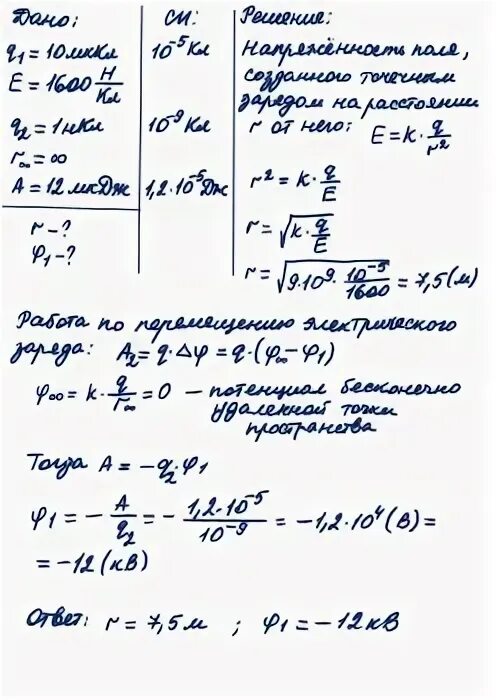 Дано:
q₁ = 10 мкКл
E = 1600 Н/Кл
q₂ = 1 нКл
r∞ = ∞
A = 12 мкДж
r - ?
φ₁ - ?
СИ:
10⁻⁵ Кл
10⁻⁹ Кл
1,2·10⁻⁵ Дж
Решение:
Напряжённость поля,
созданного точечным
зарядом на расстоянии
r от него: E = k·q/r²
r² = k·q/E
r = √(k·q/E)
r = √(9·10⁹·10⁻⁵/1600) = 7,5 (м)
Работа по перемещению электрического
заряда: A₂ = q·Δφ = q·(φ∞ - φ₁)
φ∞ = k·q/r∞ = 0 — потенциал бесконечно
удаленной точки
пространства
Тогда A = -q₂·φ₁
φ₁ = - A/q₂ = - 1,2·10⁻⁵/10⁻⁹ = -1,2·10⁴ (В) =
= -12 (кВ)
Ответ: r = 7,5 м ; φ₁ = -12 кВ